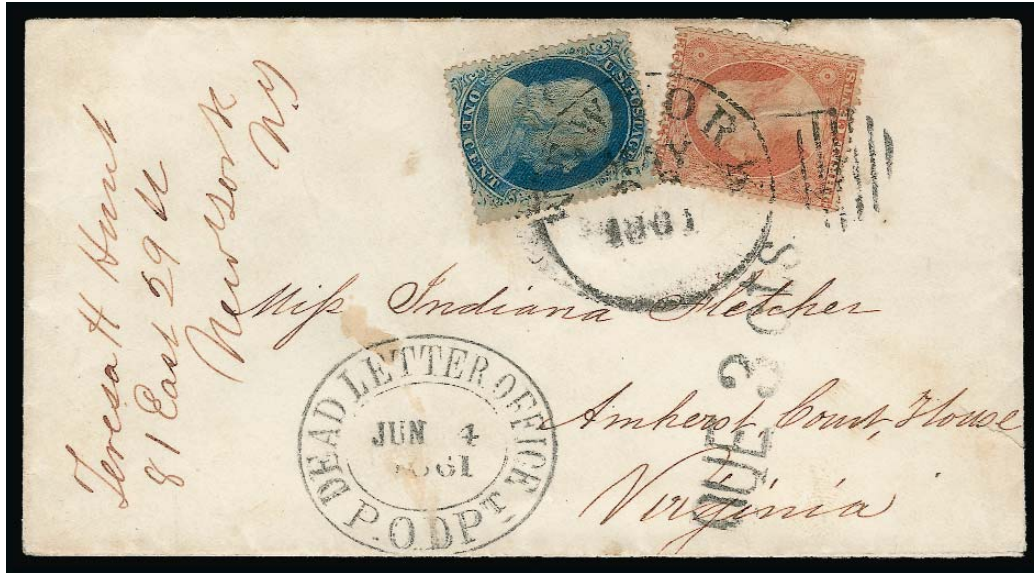 Teresa H Hunt
81 East 29 th
New York
N.Y
ONE CENT
U.S. POSTAGE
NEW YORK
1861
Miss Indiana Fletcher
Amherst Court, House
Virginia
DUE 3 CTS
DEAD LETTER OFFICE
JUN 4
1861
P.O. DPT.